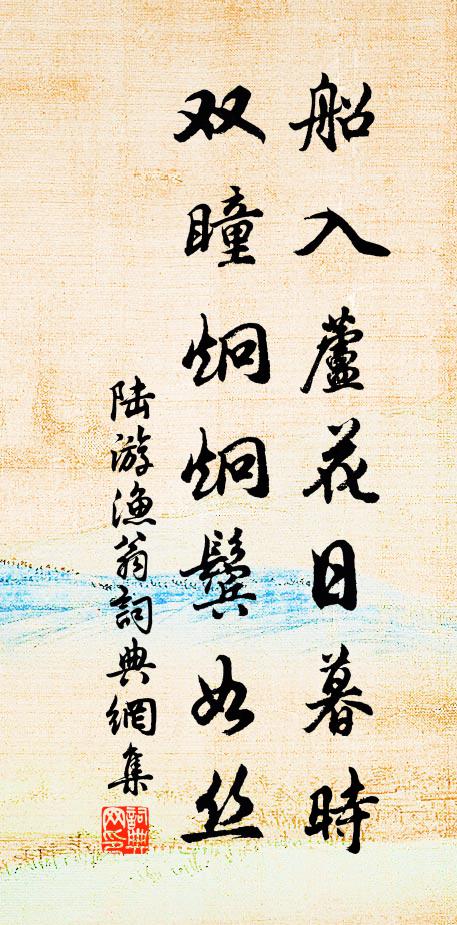 船入蘆花日暮時
双瞳炯炯鬓如丝
陆游漁翁詞典網集
詞典网印